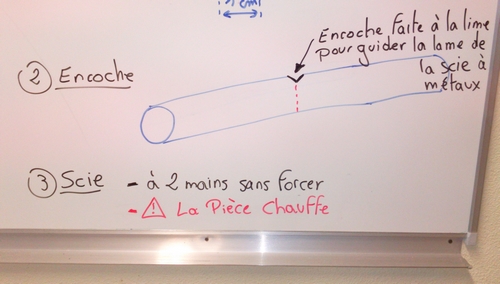 1 cm
② Encoche
Encoche faite à la lime
pour guider la lame de
la scie à
métaux
③ Scie - à 2 mains sans forcer
- ⚠ La Pièce Chauffe